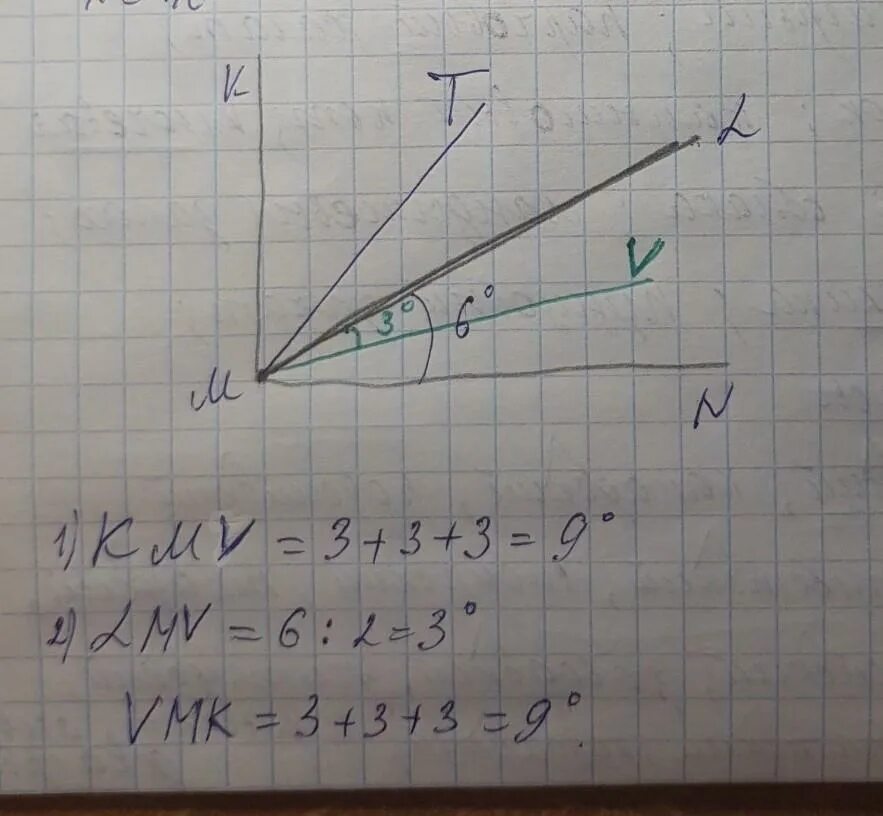 K
T
L
V
3°
6°
M
N
1) KMV = 3 + 3 + 3 = 9°
2) LMV = 6 : 2 = 3°
VMK = 3 + 3 + 3 = 9°.